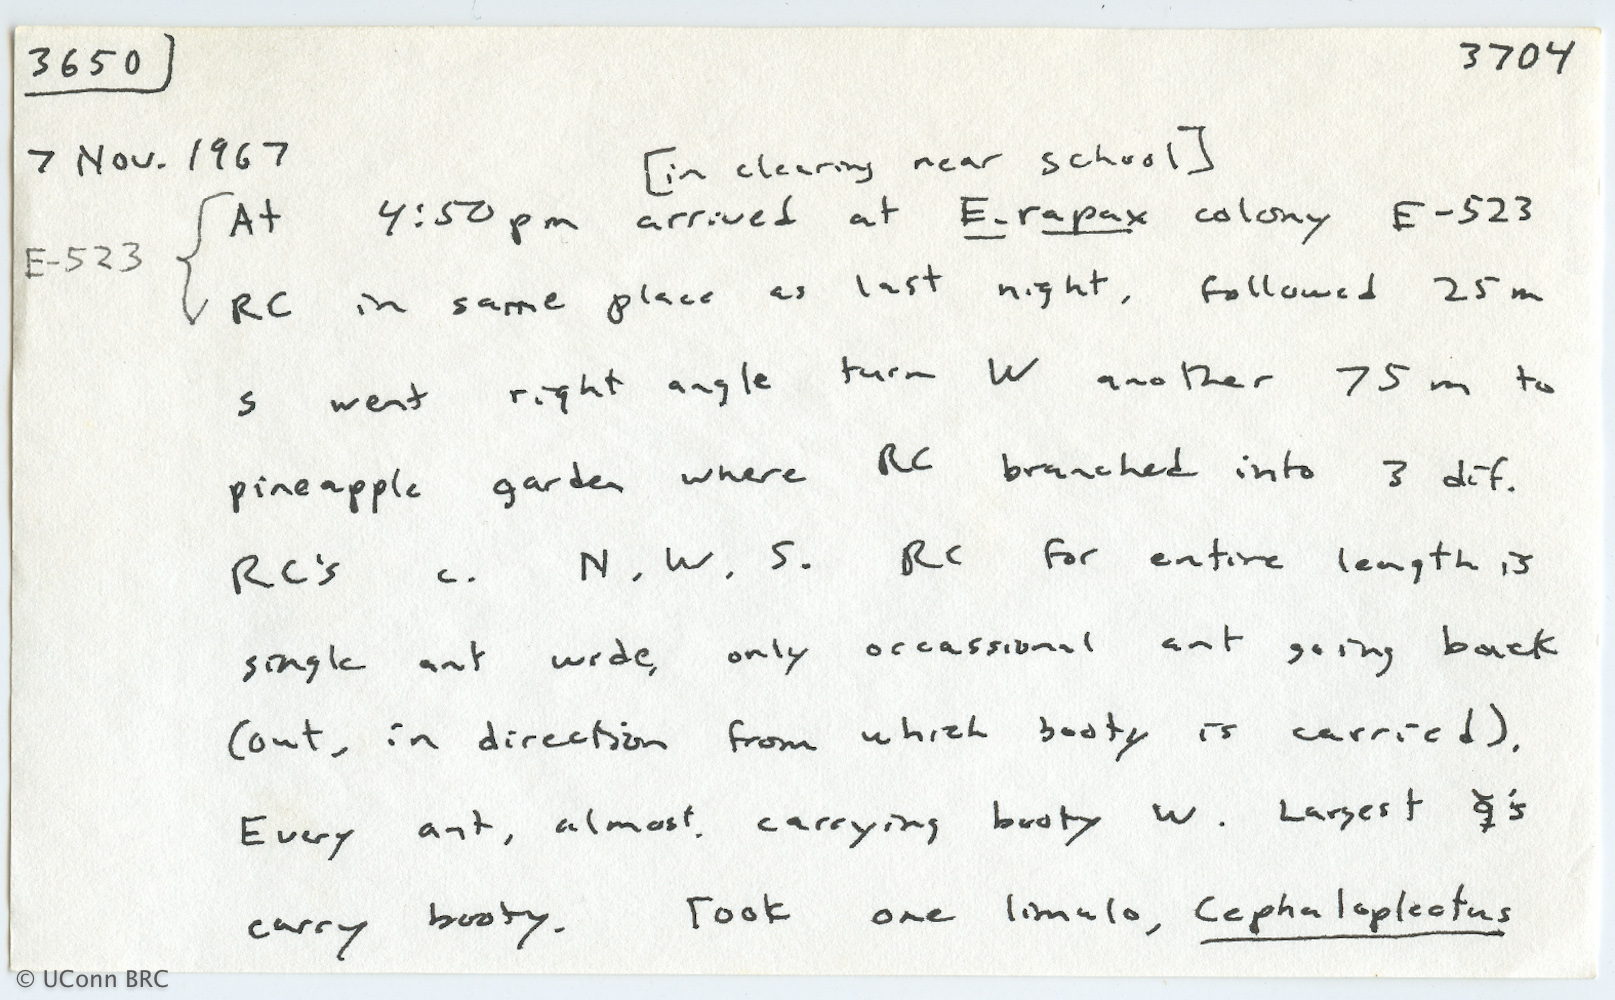 3650] 3704
7 Nov. 1967
[in clearing near school]
E-523 {At 4:50 pm arrived at E. rapax colony E-523
RC in same place as last night, followed 25 m
S went right angle turn W another 75 m to
pineapple garden where RC branched into 3 dif.
RC's c. N, W, S. RC for entire length is
single ant wide, only occassional ant going back
(out, in direction from which booty is carried).
Every ant, almost, carrying booty W. Largest ☿'s
carry booty. Took one limulo, Cephaloplectus
© UConn BRC